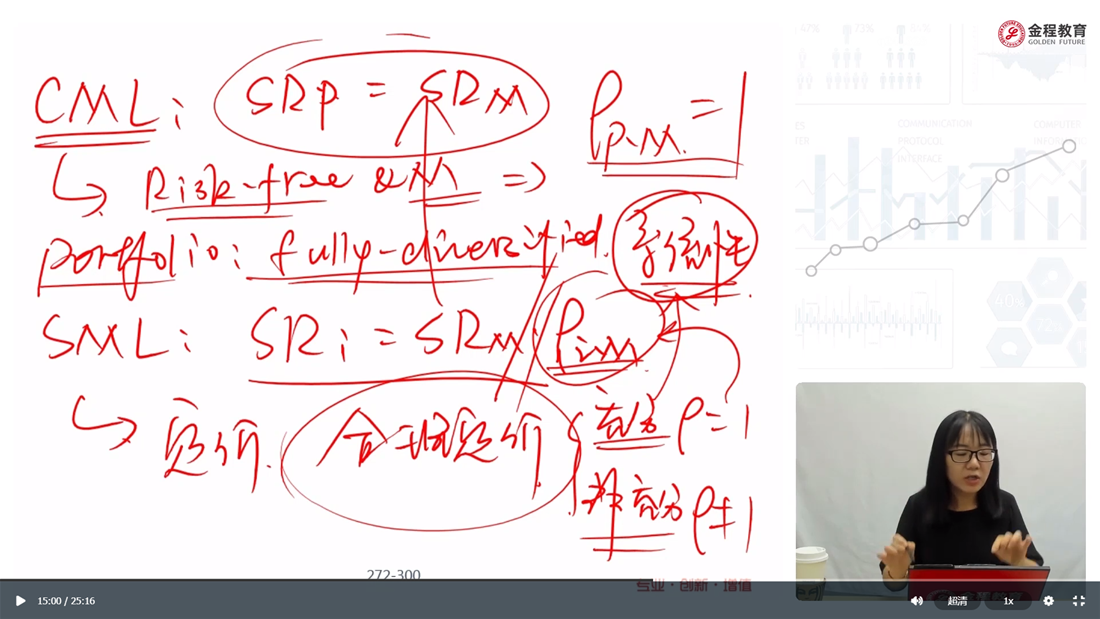 金程教育
GOLDEN FUTURE
CML: SRp = SRM ρp,M = 1
↳ Risk-free & M ⇒
portfolio: fully-diversified. 系统性
SML: SRi = SRM ρi,M
↳ 定价. 合理定价 充分 ρ=1
非充分 ρ≠1
272-300
专业·创新·增值
COMMUNICATION
PROTOCOL
INTERFACE
COMPUTER
73%
40%
72%
15:00 / 25:16
超清
1x